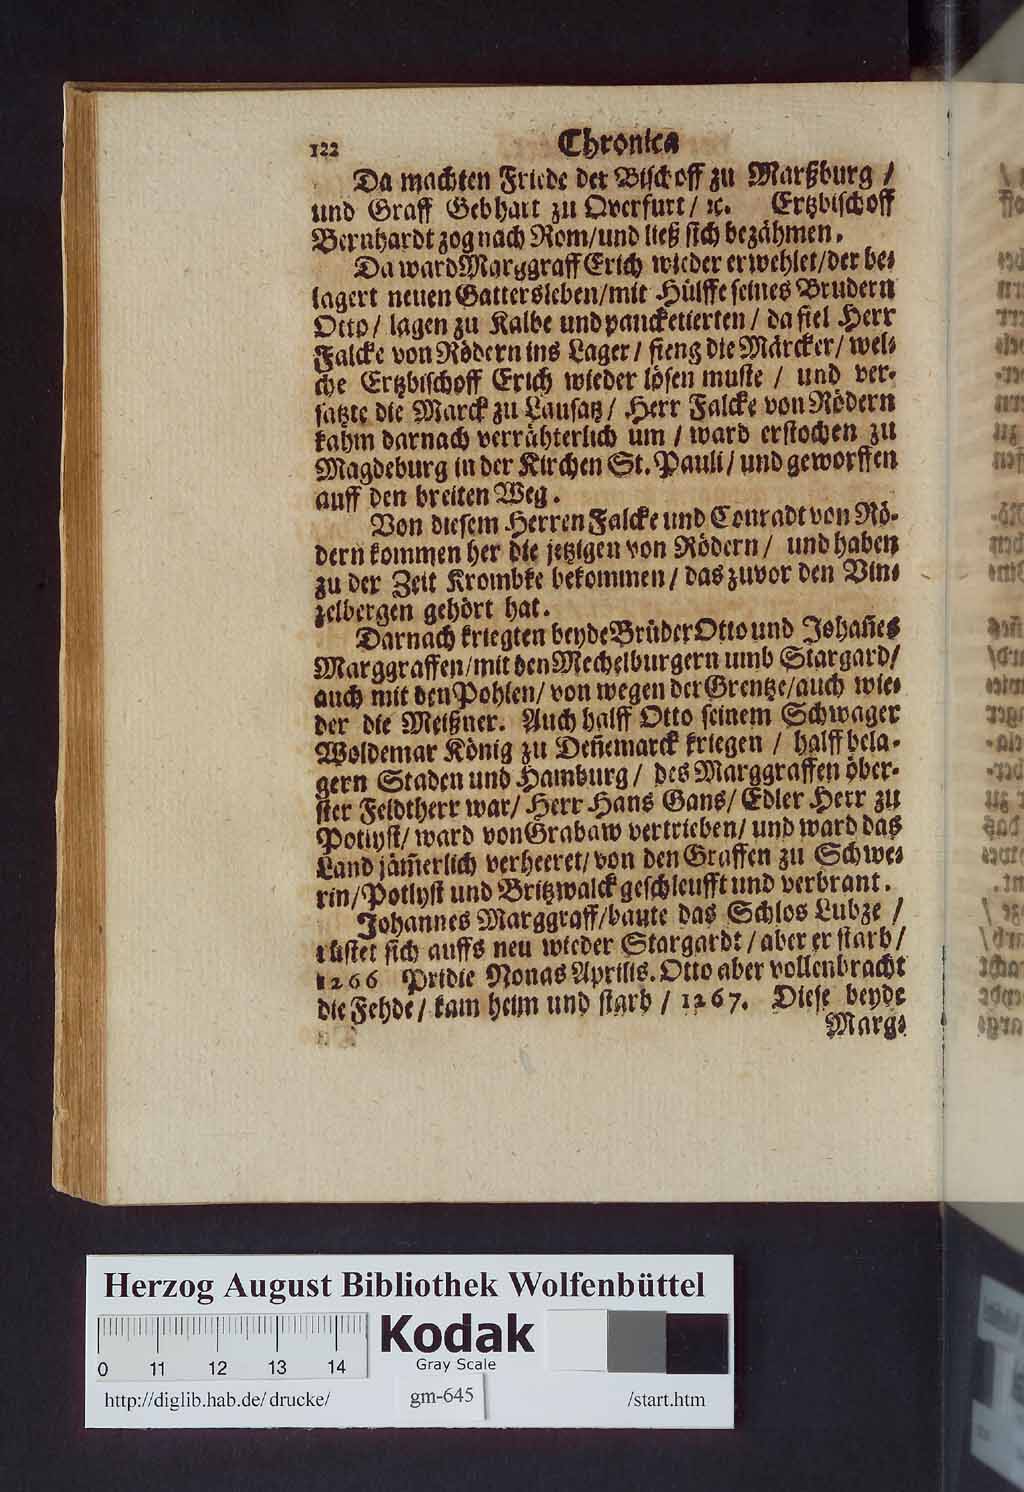 122 Chronica
Da machten Friede der Bischoff zu Marßburg /
und Graff Gebhart zu Qverfurt / ꝛc. Ertzbischoff
Bernhardt zog nach Rom / und ließ sich bezähmen.
Da ward Marggraff Erich wieder erwehlet / der be-
lagert neuen Gattersleben / mit Hülffe seines Brudern
Otto / lagen zu Kalbe und pancketierten / da fiel Herr
Falcke von Rödern ins Lager / fieng die Märcker / wel-
che Ertzbischoff Erich wieder lösen muste / und ver-
satzte die Marck zu Lausatz / Herr Falcke von Rödern
kahm darnach verrähterlich um / ward erstochen zu
Magdeburg in der Kirchen St. Pauli / und geworffen
auff den breiten Weg.
Von diesem Herren Falcke und Conradt von Rö-
dern kommen her die jetzigen von Rödern / und haben
zu der Zeit Krombke bekommen / das zuvor den Vin-
zelbergen gehört hat.
Darnach kriegten beyde Brüder Otto und Johañes
Marggraffen / mit den Mechelburgern umb Stargard /
auch mit den Pohlen / von wegen der Grentze / auch wie-
der die Meißner. Auch halff Otto seinem Schwager
Woldemar König zu Deñemarck kriegen / halff bela-
gern Staden und Hamburg / des Marggraffen öber-
ster Feldtherr war / Herr Hans Gans / Edler Herr zu
Potlyst / ward von Grabaw vertrieben / und ward das
Land jäm̃erlich verheeret / von den Graffen zu Schwe-
rin / Potlyst und Britzwalck geschleufft und verbrant.
Johannes Marggraff / baute das Schlos Lubze /
rüstet sich auffs neu wieder Stargardt / aber er starb /
1266 Pridie Nonas Aprilis. Otto aber vollenbracht
die Fehde / kam heim und starb / 1267. Diese beyde
Marg-
Herzog August Bibliothek Wolfenbüttel
Kodak
Gray Scale
0 11 12 13 14
http://diglib.hab.de/drucke/ gm-645 /start.htm